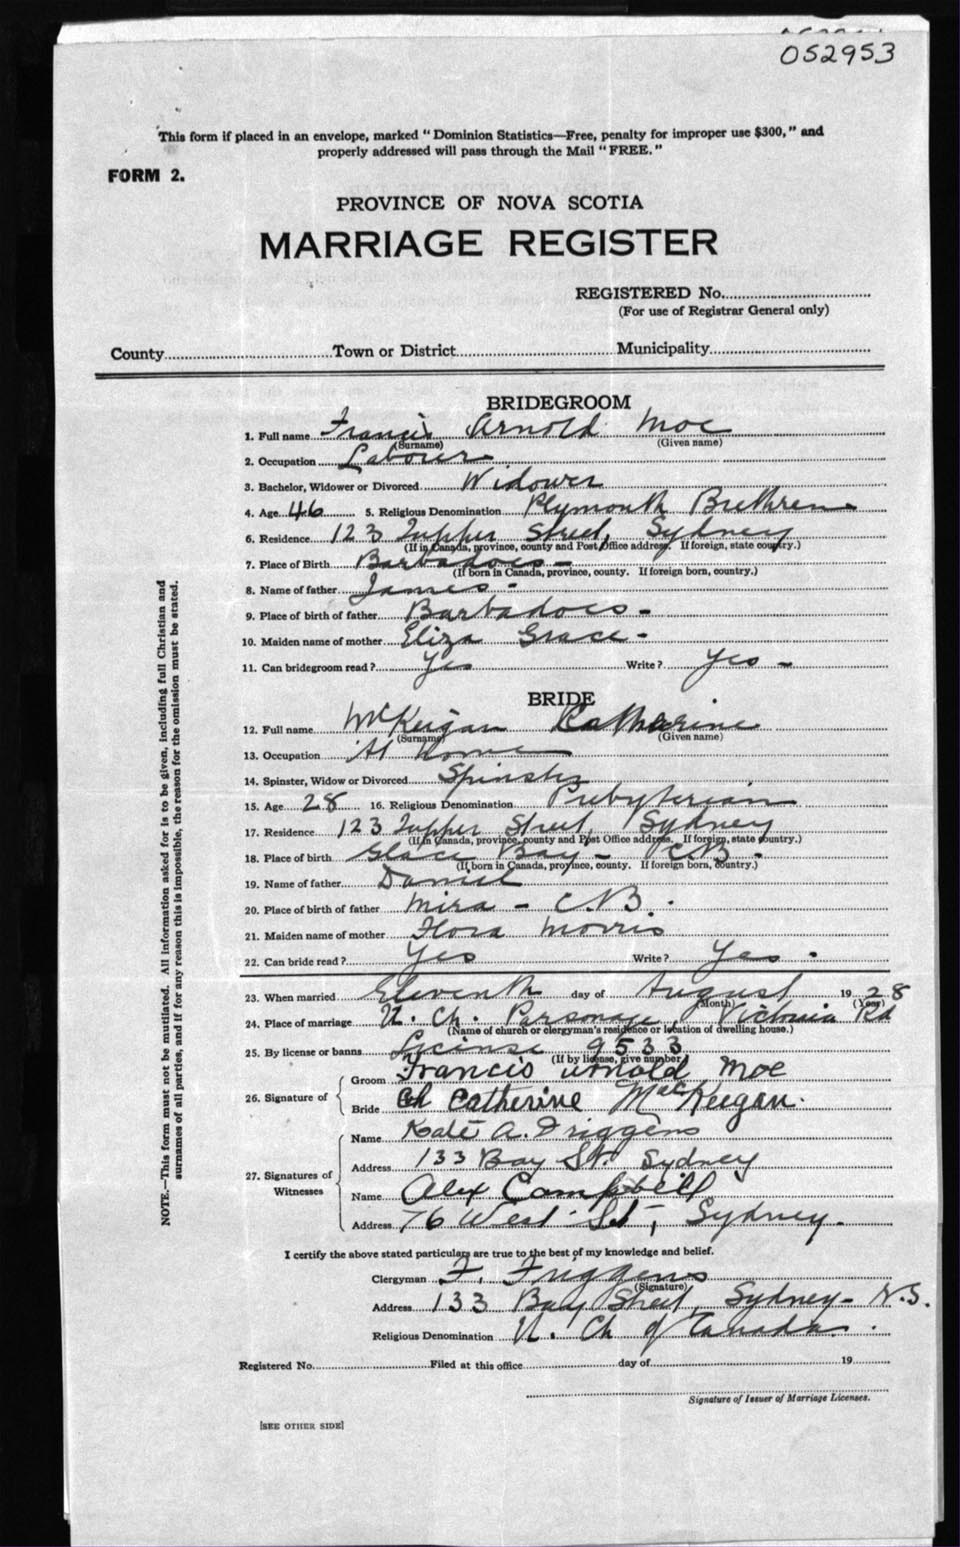 052953
This form if placed in an envelope, marked "Dominion Statistics—Free, penalty for improper use $300," and
properly addressed will pass through the Mail "FREE."
FORM 2.
PROVINCE OF NOVA SCOTIA
MARRIAGE REGISTER
REGISTERED No.
(For use of Registrar General only)
County Town or District Municipality
BRIDEGROOM
1. Full name Francis Arnold Moe
(Surname) (Given name)
2. Occupation Labourer
3. Bachelor, Widower or Divorced Widower
4. Age 46 5. Religious Denomination Plymouth Brethren
6. Residence 123 Tupper Street, Sydney
(If in Canada, province, county and Post Office address. If foreign, state country.)
7. Place of Birth Barbadoes -
(If born in Canada, province, county. If foreign born, country.)
8. Name of father James -
9. Place of birth of father Barbadoes -
10. Maiden name of mother Eliza Grace -
11. Can bridegroom read? Yes Write? Yes -
BRIDE
12. Full name McKeigan Catharine
(Surname) (Given name)
13. Occupation At Home
14. Spinster, Widow or Divorced Spinster
15. Age 28 16. Religious Denomination Presbyterian
17. Residence 123 Tupper Street, Sydney
(If in Canada, province, county and Post Office address. If foreign, state country.)
18. Place of birth Glace Bay - C.B.
(If born in Canada, province, county. If foreign born, country.)
19. Name of father Daniel
20. Place of birth of father Mira - C.B.
21. Maiden name of mother Flora Morris
22. Can bride read? Yes Write? Yes.
23. When married Eleventh day of August 1928
(Month) (Year)
24. Place of marriage U. Ch. Parsonage, Victoria Rd
(Name of church or clergyman's residence or location of dwelling house.)
25. By license or banns License 9533
(If by license, give number)
26. Signature of
Groom Francis Arnold Moe
Bride Catherine MacKeegan.
27. Signatures of
Witnesses
Name Kate A. Friggens
Address 133 Bay St. Sydney
Name Alex Campbell
Address 76 West St, Sydney.
I certify the above stated particulars are true to the best of my knowledge and belief.
Clergyman F. Friggens
(Signature)
Address 133 Bay Street, Sydney - N.S.
Religious Denomination U. Ch of Canada.
Registered No. Filed at this office day of 19
Signature of Issuer of Marriage Licenses.
[SEE OTHER SIDE]
NOTE.—This form must not be mutilated. All information asked for is to be given, including full Christian and
surnames of all parties, and if for any reason this is impossible, the reason for the omission must be stated.